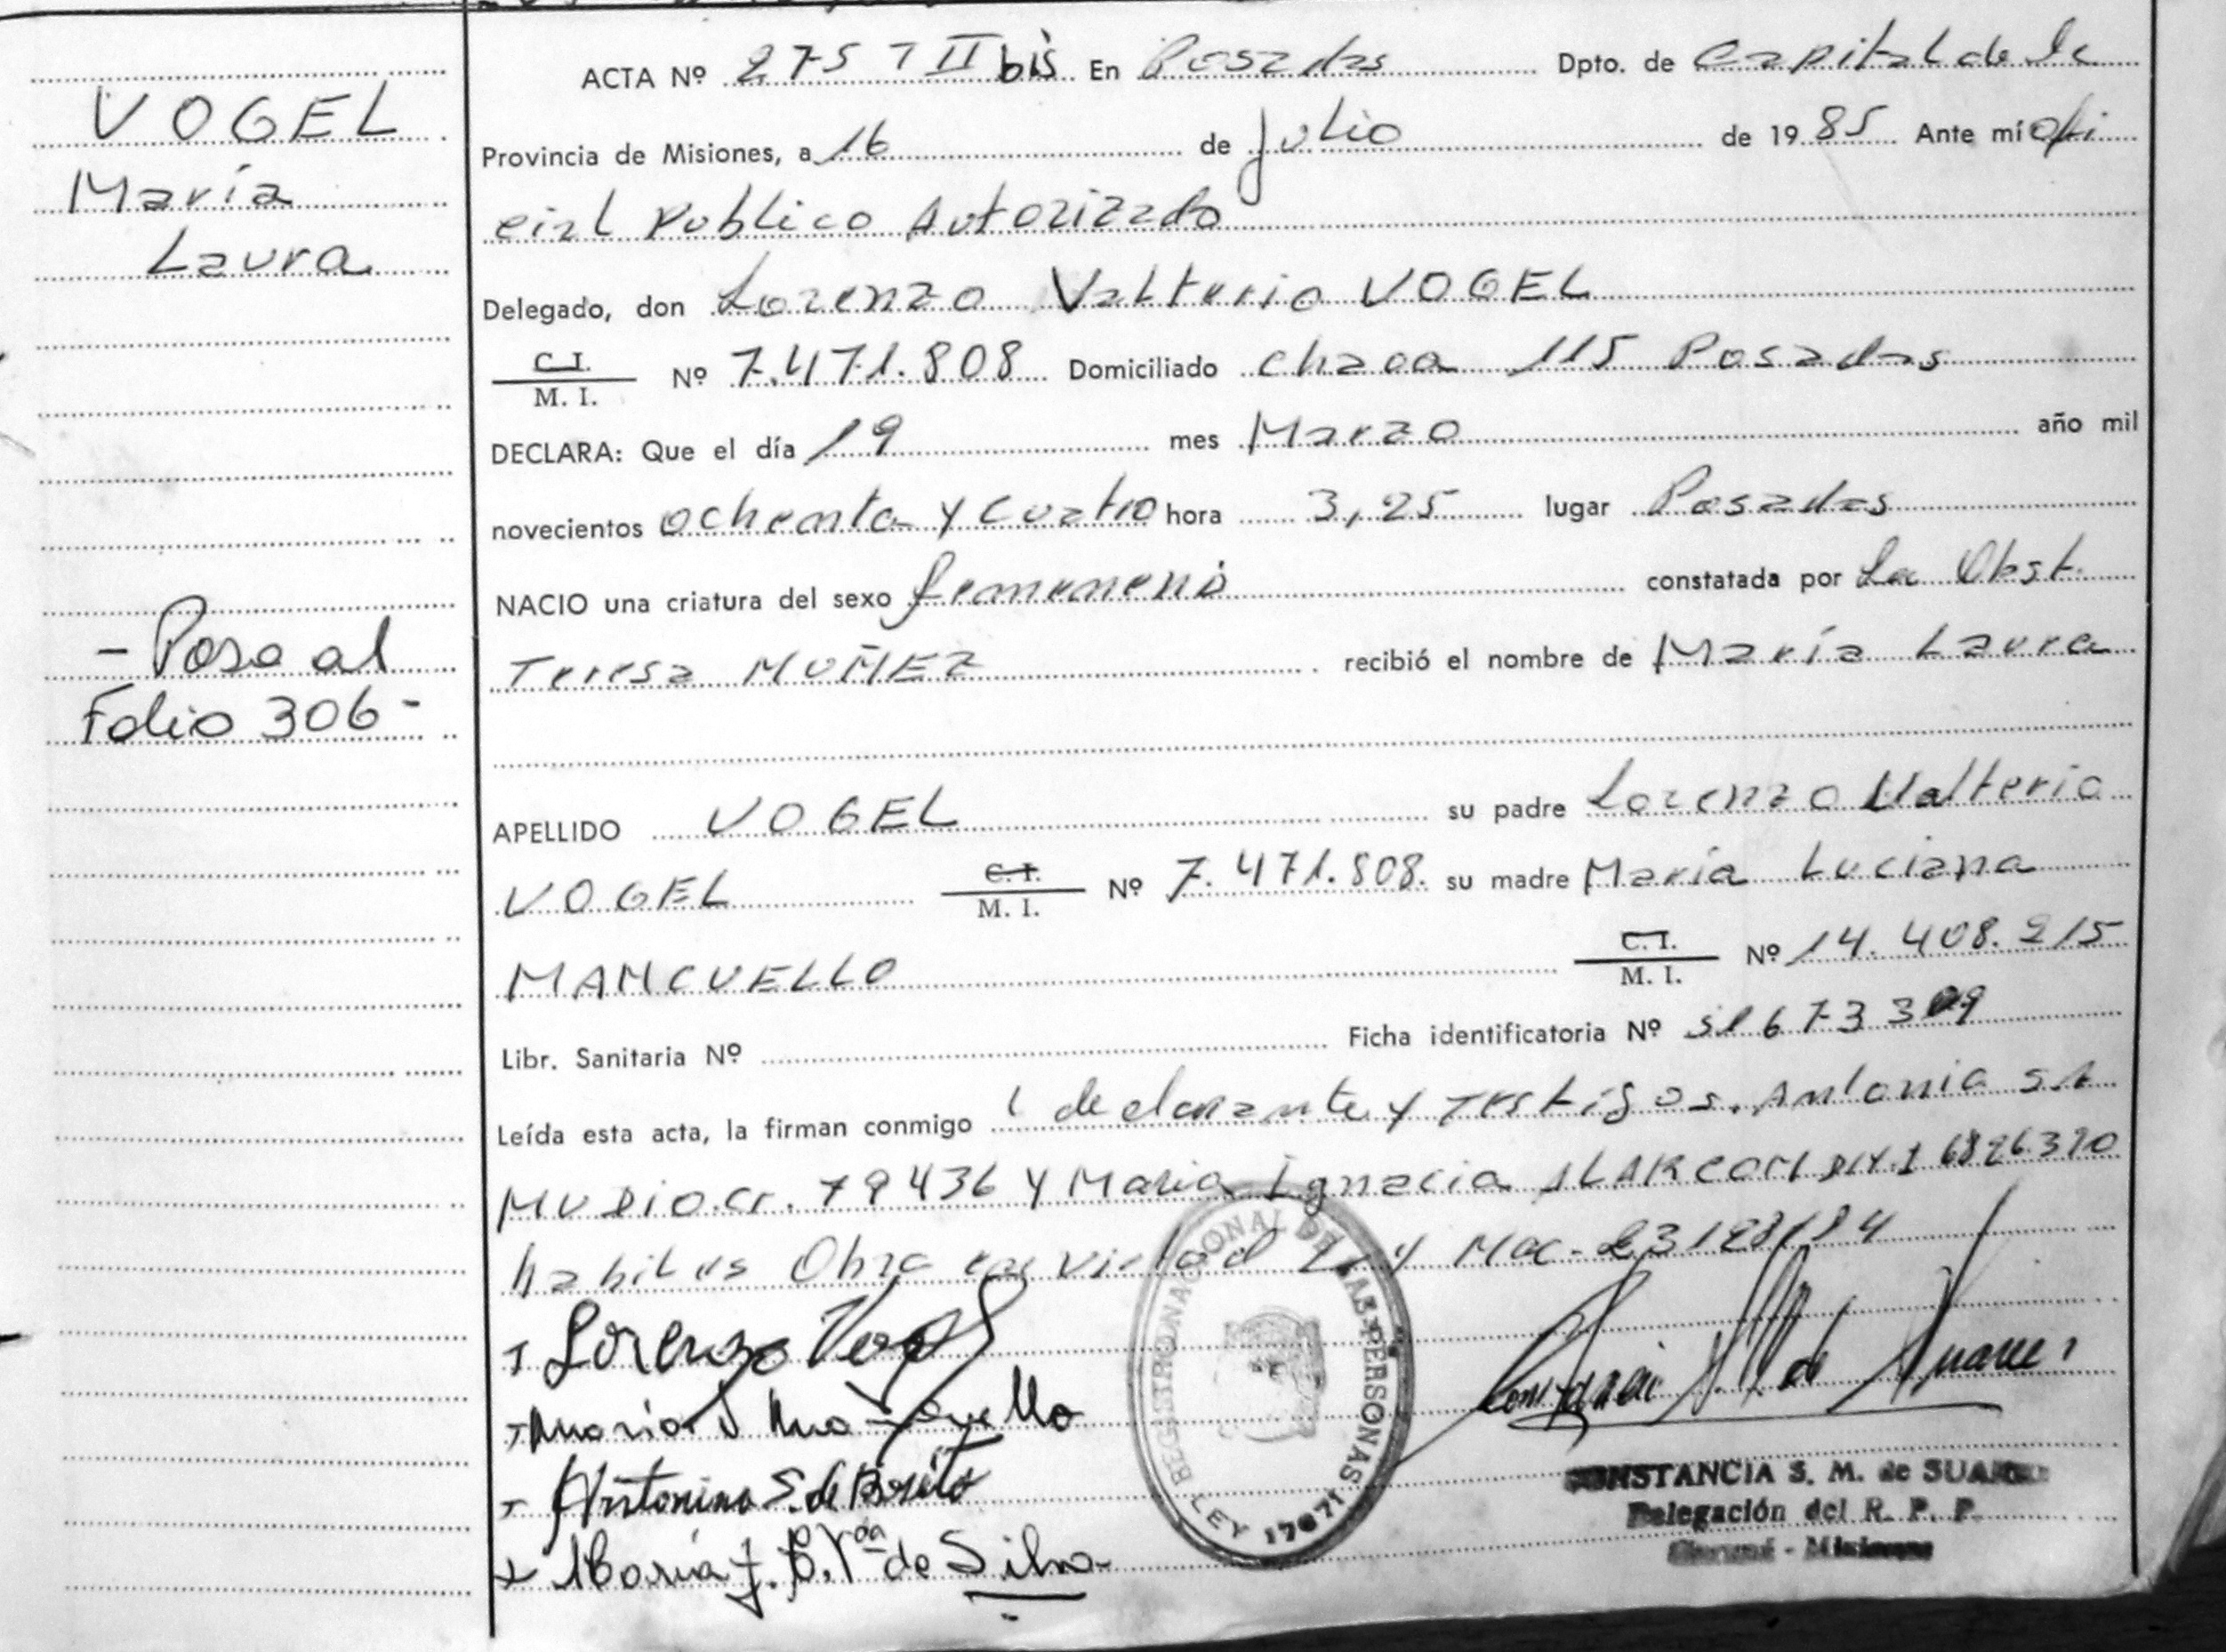 VOGEL
María
Laura
- Pasa al
Folio 306 -
ACTA Nº 275 T II bis En Posadas Dpto. de Capital de la
Provincia de Misiones, a 16 de Julio de 1985 Ante mí ofi
cial Publico Autorizado
Delegado, don Lorenzo Valterio VOGEL
C. I.
M. I. Nº 7.471.808 Domiciliado chaca 115 Posadas
DECLARA: Que el día 19 mes Marzo año mil
novecientos ochenta y cuatro hora 3,25 lugar Posadas
NACIO una criatura del sexo femeneno constatada por La Obst.
Teresa MUÑEZ recibió el nombre de María Laura
APELLIDO VOGEL su padre Lorenzo Valterio
VOGEL C. I.
M. I. Nº 7.471.808. su madre María Luciana
MANCUELLO C. I.
M. I. Nº 14.408.215
Libr. Sanitaria Nº Ficha identificatoria Nº
Leída esta acta, la firman conmigo declarante y Testigos. Antonia
MUDIO. CI. 79436 y Maria Ignacia ALARCON 6826320
habiles Obra en
Lorenzo Vogel
Antonina S. de Brito
de Silva
REGISTRO NACIONAL DE LAS PERSONAS
LEY 17671
CONSTANCIA S. M. de SUAREZ
Delegación del R. P. P.